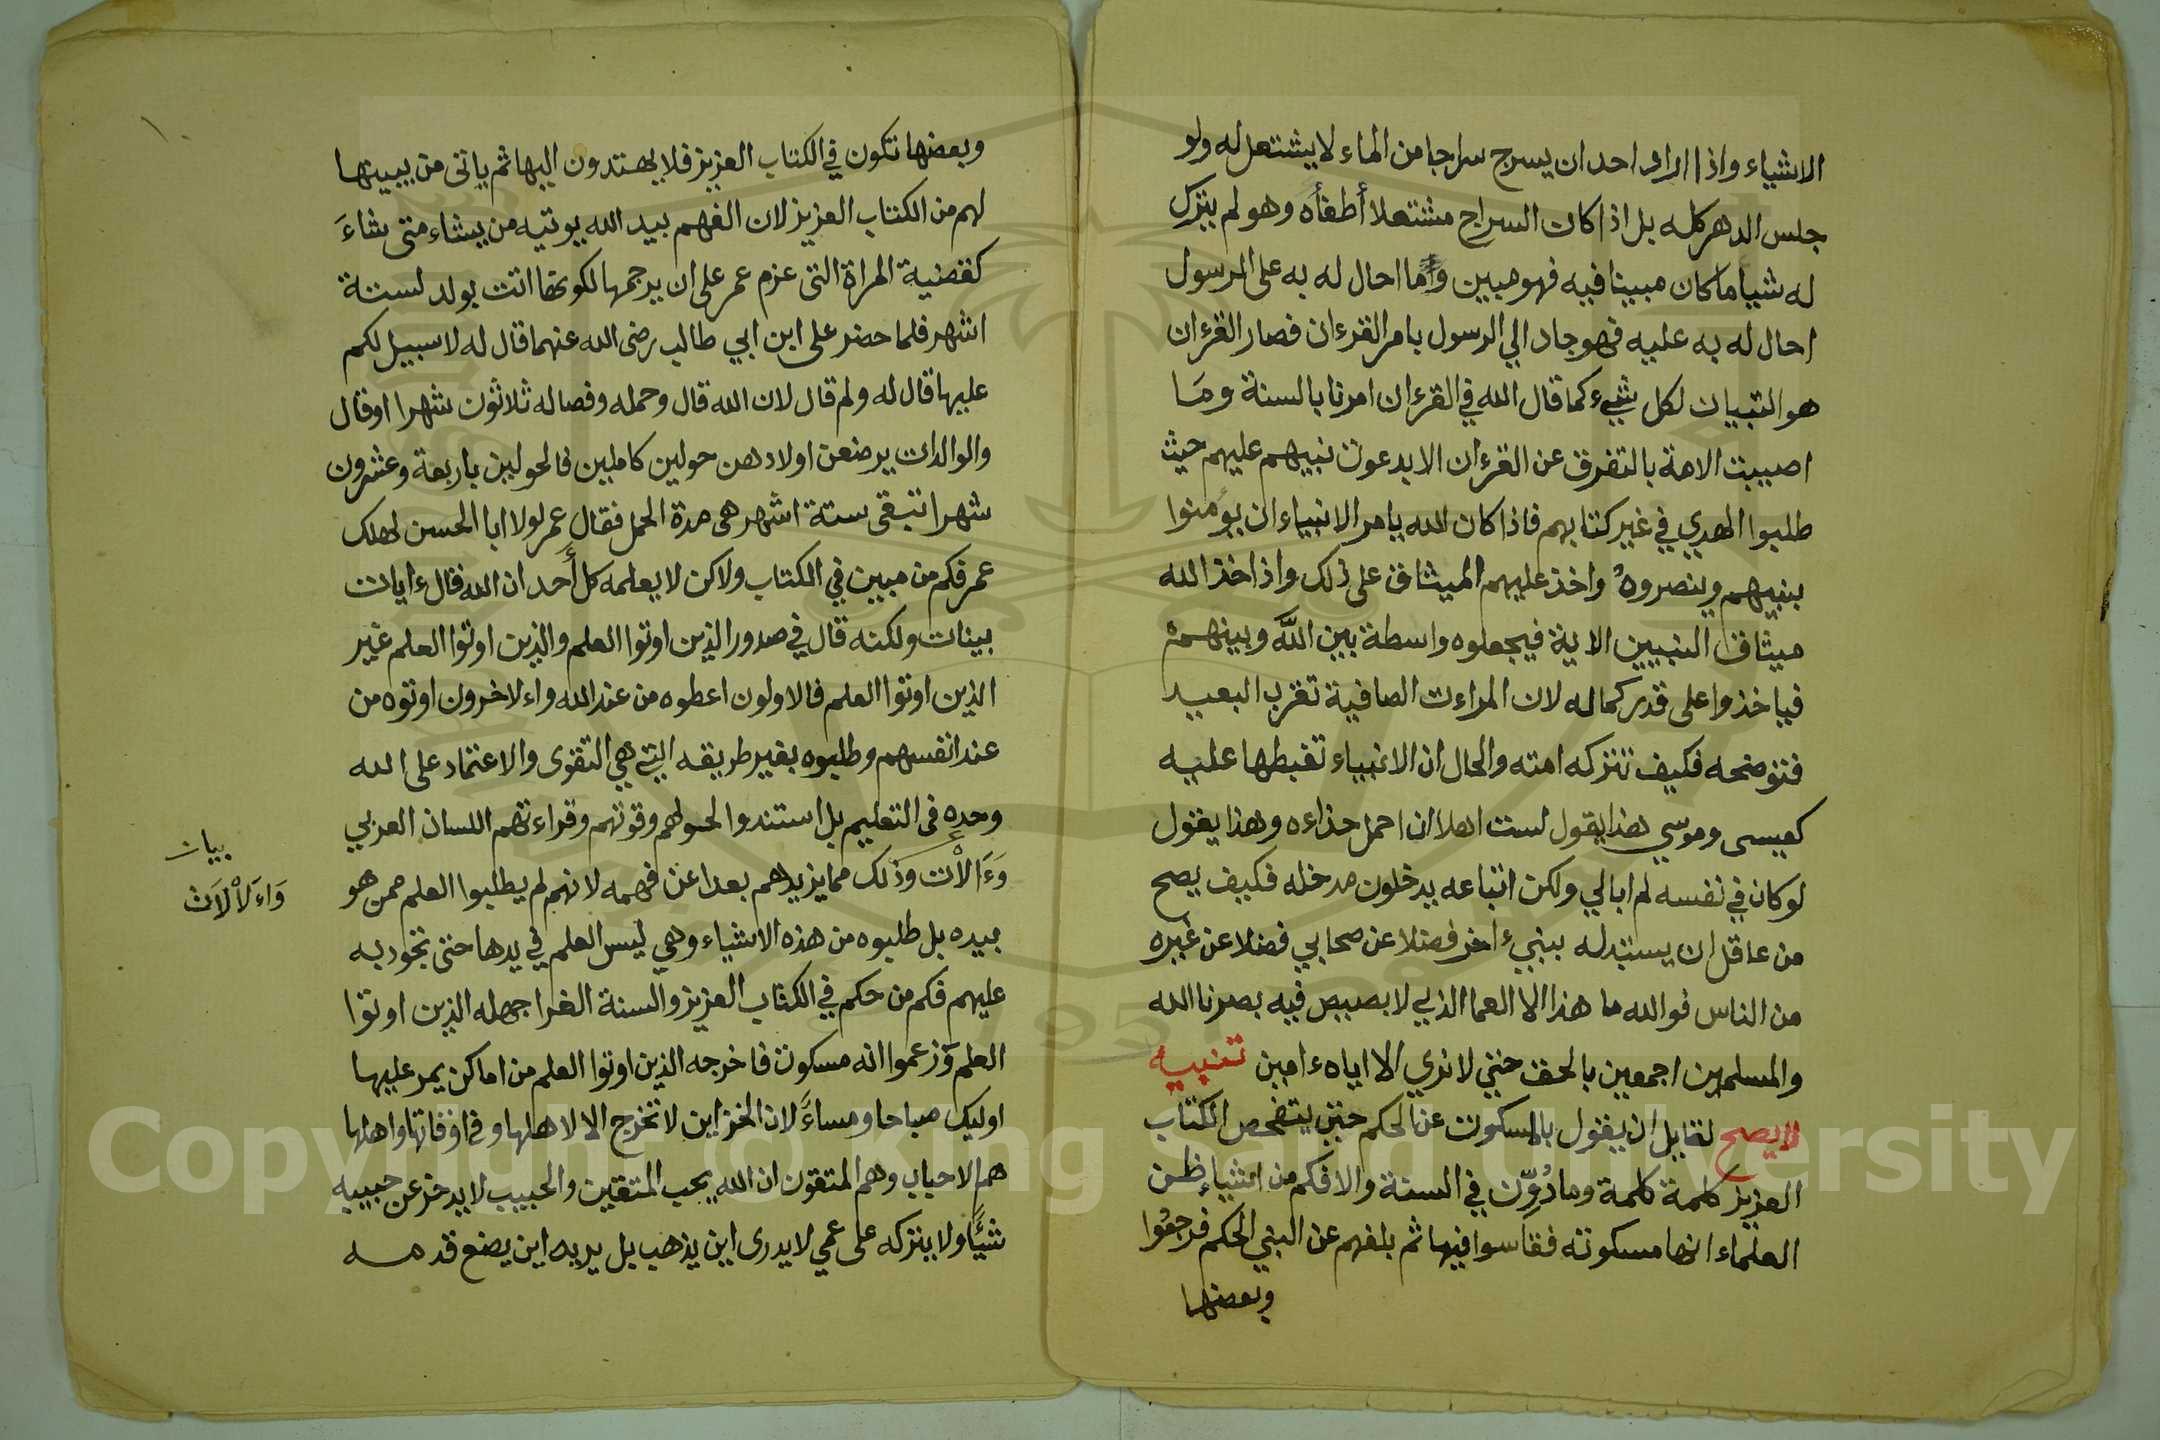 الاشياء واذا اراد احد ان يسرج سراجا من الماء لا يشتعل له ولو
جلس الدهر كله بل اذا كان السراج مشتعلا أطفأه وهو لم يترك
له شيأ ما كان مبينا فيه فهو مبين وما احال له به على الرسول
احال له به عليه فهو جاد الي الرسول بامر القرءان فصار القرءان
هو التبيان لكل شيء كما قال الله في القرءان امرنا بالسنة وما
اصيبت الامة بالتفرق عن القرءان الا بدعوت نبيهم عليهم حيث
طلبوا الهدي في غير كتابهم فاذا كان الله يامر الانبياء ان يؤمنوا
بنبيهم وينصروه واخذ عليهم الميثاق على ذلك واذ اخذ الله
ميثاق النبيين الاية فيجعلوه واسطة بين الله وبينهم
فياخذوا على قدر كماله لان المراءت الصافية تقرب البعيد
فتوضحه فكيف تتركه امته والحال ان الانبياء تغبطها عليه
كعيسى وموسي هذا يقول لست اهلا ان احمل حذاءه وهذا يقول
لو كان في نفسه لم ابالي ولكن اتباعه يدخلون مدخله فكيف يصح
من عاقل ان يستبدله بنبيء اخر فضلا عن صحابي فضلا عن غيره
من الناس فوالله ما هذا الا العما الذي لا بصيص فيه بصرنا الله
والمسلمين اجمعين بالحق حتي لا نري الا اياه ءامين تنبيه
لا يصح لقايل ان يقول بالمسكوت عن الحكم حتي يتفحص الكتاب
العزيز كلمة كلمة وما دُوّن في السنة والا فكم من اشياء ظن
العلماء انها مسكوتة فقاسوا فيها ثم بلغهم عن النبي الحكم فرجعوا
وبعضها
وبعضها تكون في الكتاب العزيز فلا يهتدون اليها ثم ياتى من يبينها
لهم من الكتاب العزيز لان الفهم بيد الله يوتيه من يشاء متى شاءَ
كقضية المراة التى عزم عمر على ان يرجمها لكونها اتت بولد لستة
اشهر فلما حضر على ابن ابي طالب رضى الله عنهما قال له لا سبيل لكم
عليها قال له ولم قال لان الله قال وحمله وفصاله ثلاثون شهرا او قال
والوالدات يرضعن اولادهن حولين كاملين فالحولين باربعة وعشرون
شهرا تبقى ستة اشهر هى مدة الحمل فقال عمر لولا ابا الحسن لهلك
عمر فكم من مبين في الكتاب ولاكن لا يعلمه كل أحد ان الله قال ءايات
بينات ولكنه قال في صدور الذين اوتوا العلم والذين اوتوا العلم غير
الذين اوتوا العلم فالاولون اعطوه من عند الله واءلاخرون اوتوه من
عند انفسهم وطلبوه بغير طريقه التي هي التقوى والاعتماد على الله
وحده فى التعليم بل استندوا لحولهم وقوتهم وقراءتهم اللسان العربي
وَءَالأْلَات وذلك مما يزيدهم بعدا عن فهمه لانهم لم يطلبوا العلم ممن هو
بيده بل طلبوه من هذه الاشياء وهي ليس العلم في يدها حتى تجود به
عليهم فكم من حكم في الكتاب العزيز والسنة الغرا جهله الذين اوتوا
العلم وزعموا انه مسكوت فاخرجه الذين اوتوا العلم من اماكن يمر عليها
اوليك صباحا ومساءً لان الخزاين لا تخرج الا لاهلها وفى اوقاتها واهلها
هم الاحباب وهم المتقون ان الله يحب المتقين والحبيب لا يدخر عن حبيبه
شئًا ولا يتركه على عمي لا يدرى اين يذهب بل يريه اين يضع قدمه
بيان
وَاءَلأْلَات
Copyright © King Saud University
1957